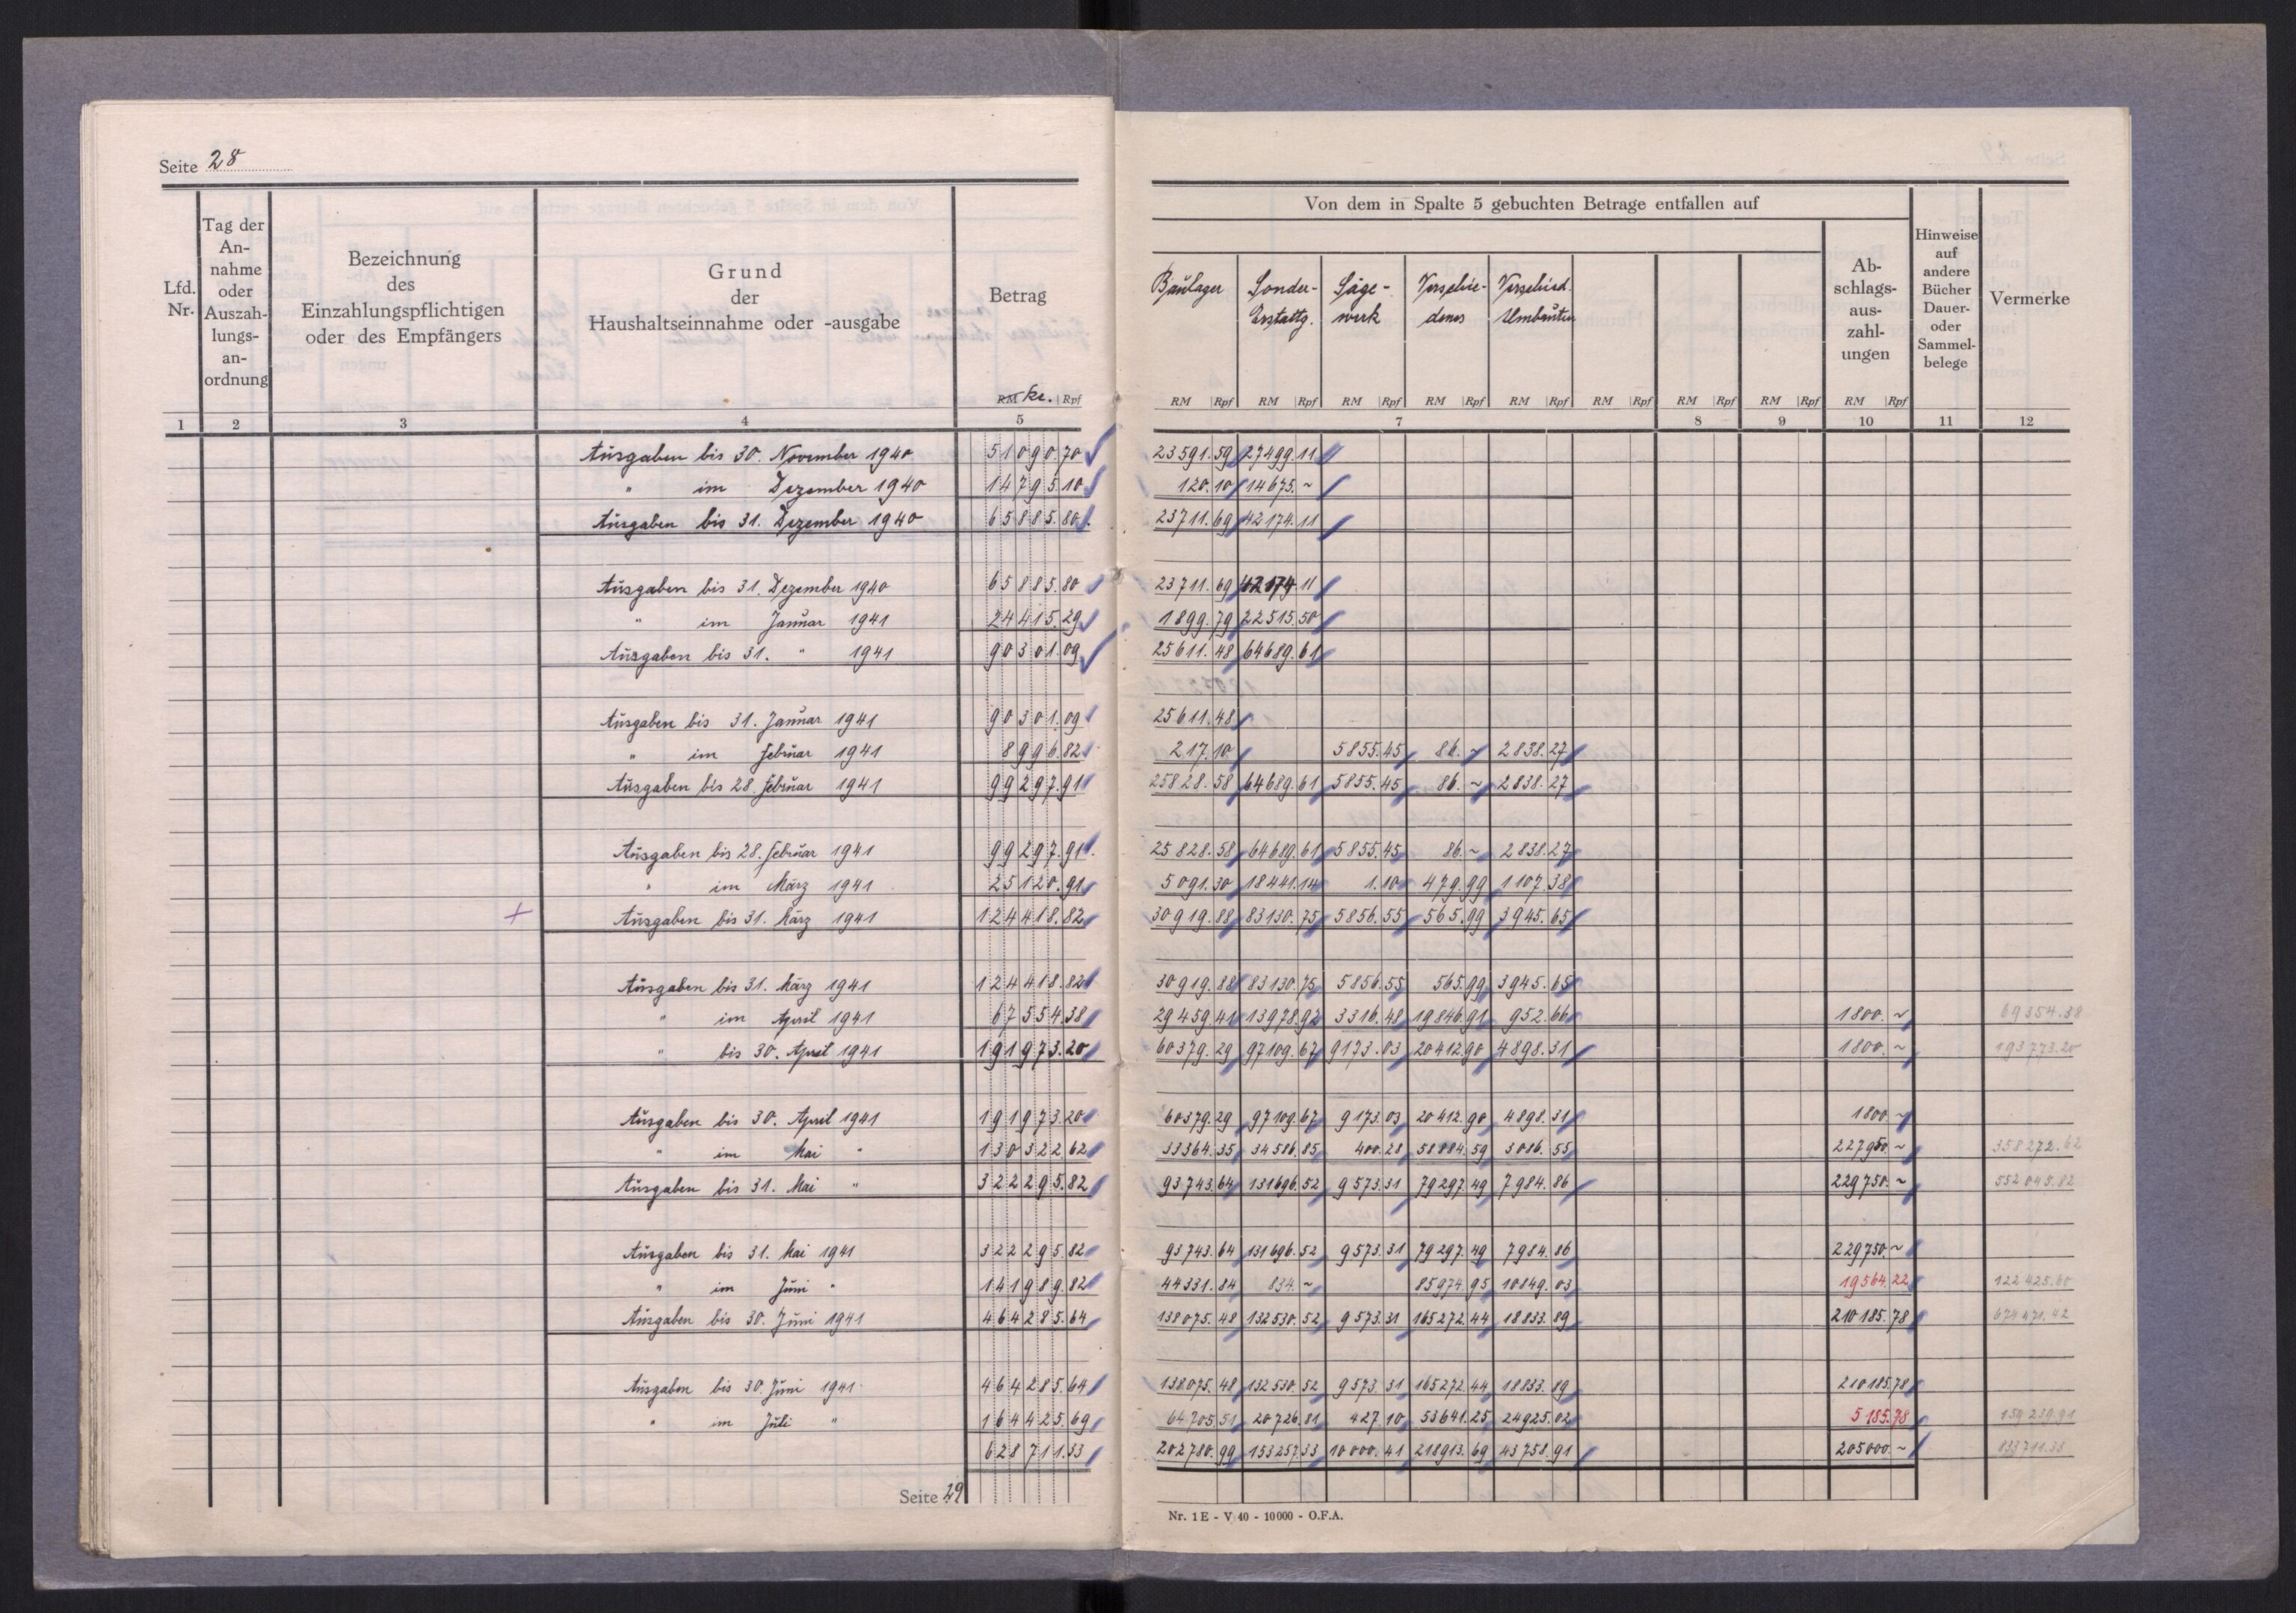 Seite 28
Lfd. Nr.
Tag der An- nahme oder Auszah- lungs- an- ordnung
Bezeichnung des Einzahlungspflichtigen oder des Empfängers
Grund der Haushaltseinnahme oder -ausgabe
Betrag
RM Kr. Rpf
1 2 3 4 5
Von dem in Spalte 5 gebuchten Betrage entfallen auf
Baulager
Sonder- Erstattg.
Säge- werk
Verschie- denes
Verschied. Umbauten
Ab- schlags- aus- zahl- ungen
Hinweise auf andere Bücher Dauer- oder Sammel- belege
Vermerke
RM Rpf RM Rpf RM Rpf RM Rpf RM Rpf RM Rpf RM Rpf RM Rpf RM Rpf
7 8 9 10 11 12
Ausgaben bis 30. November 1940 51090.70 23591.59 27499.11
" im Dezember 1940 14795.10 120.10 14675.~
Ausgaben bis 31. Dezember 1940 65885.80 23711.69 42174.11
Ausgaben bis 31. Dezember 1940 65885.80 23711.69 42174.11
" im Januar 1941 24415.29 1899.79 22515.50
Ausgaben bis 31. " 1941 90301.09 25611.48 64689.61
Ausgaben bis 31. Januar 1941 90301.09 25611.48
" im Februar 1941 8996.82 217.10 5855.45 86.~ 2838.27
Ausgaben bis 28. Februar 1941 99297.91 25828.58 64689.61 5855.45 86.~ 2838.27
Ausgaben bis 28. Februar 1941 99297.91 25828.58 64689.61 5855.45 86.~ 2838.27
" im März 1941 25120.91 5091.30 18441.14 1.10 479.99 1107.38
+ Ausgaben bis 31. März 1941 124418.82 30919.88 83130.75 5856.55 565.99 3945.65
Ausgaben bis 31. März 1941 124418.82 30919.88 83130.75 5856.55 565.99 3945.65
" im April 1941 67554.38 29459.41 13978.92 3316.48 19846.91 952.66 1800.~ 69354.38
" bis 30. April 1941 191973.20 60379.29 97109.67 9173.03 20412.90 4898.31 1800.~ 193773.20
Ausgaben bis 30. April 1941 191973.20 60379.29 97109.67 9173.03 20412.90 4898.31 1800.~
" im Mai " 130322.62 33364.35 34586.85 400.28 58884.59 3086.55 227950.~ 358272.62
Ausgaben bis 31. Mai " 322295.82 93743.64 131696.52 9573.31 79297.49 7984.86 229750.~ 552045.82
Ausgaben bis 31. Mai 1941 322295.82 93743.64 131696.52 9573.31 79297.49 7984.86 229750.~
" im Juni " 141989.82 44331.84 834.~ 85974.95 10849.03 19564.22 122425.60
Ausgaben bis 30. Juni 1941 464285.64 138075.48 132530.52 9573.31 165272.44 18833.89 210185.78 674471.42
Ausgaben bis 30. Juni 1941 464285.64 138075.48 132530.52 9573.31 165272.44 18833.89 210185.78
" im Juli " 164425.69 64705.51 20726.81 427.10 53641.25 24925.02 5185.78 159239.91
628711.33 202780.99 153257.33 10000.41 218913.69 43758.91 205000.~ 833711.33
Seite 29
Nr. 1 E - V 40 - 10 000 - O.F.A.